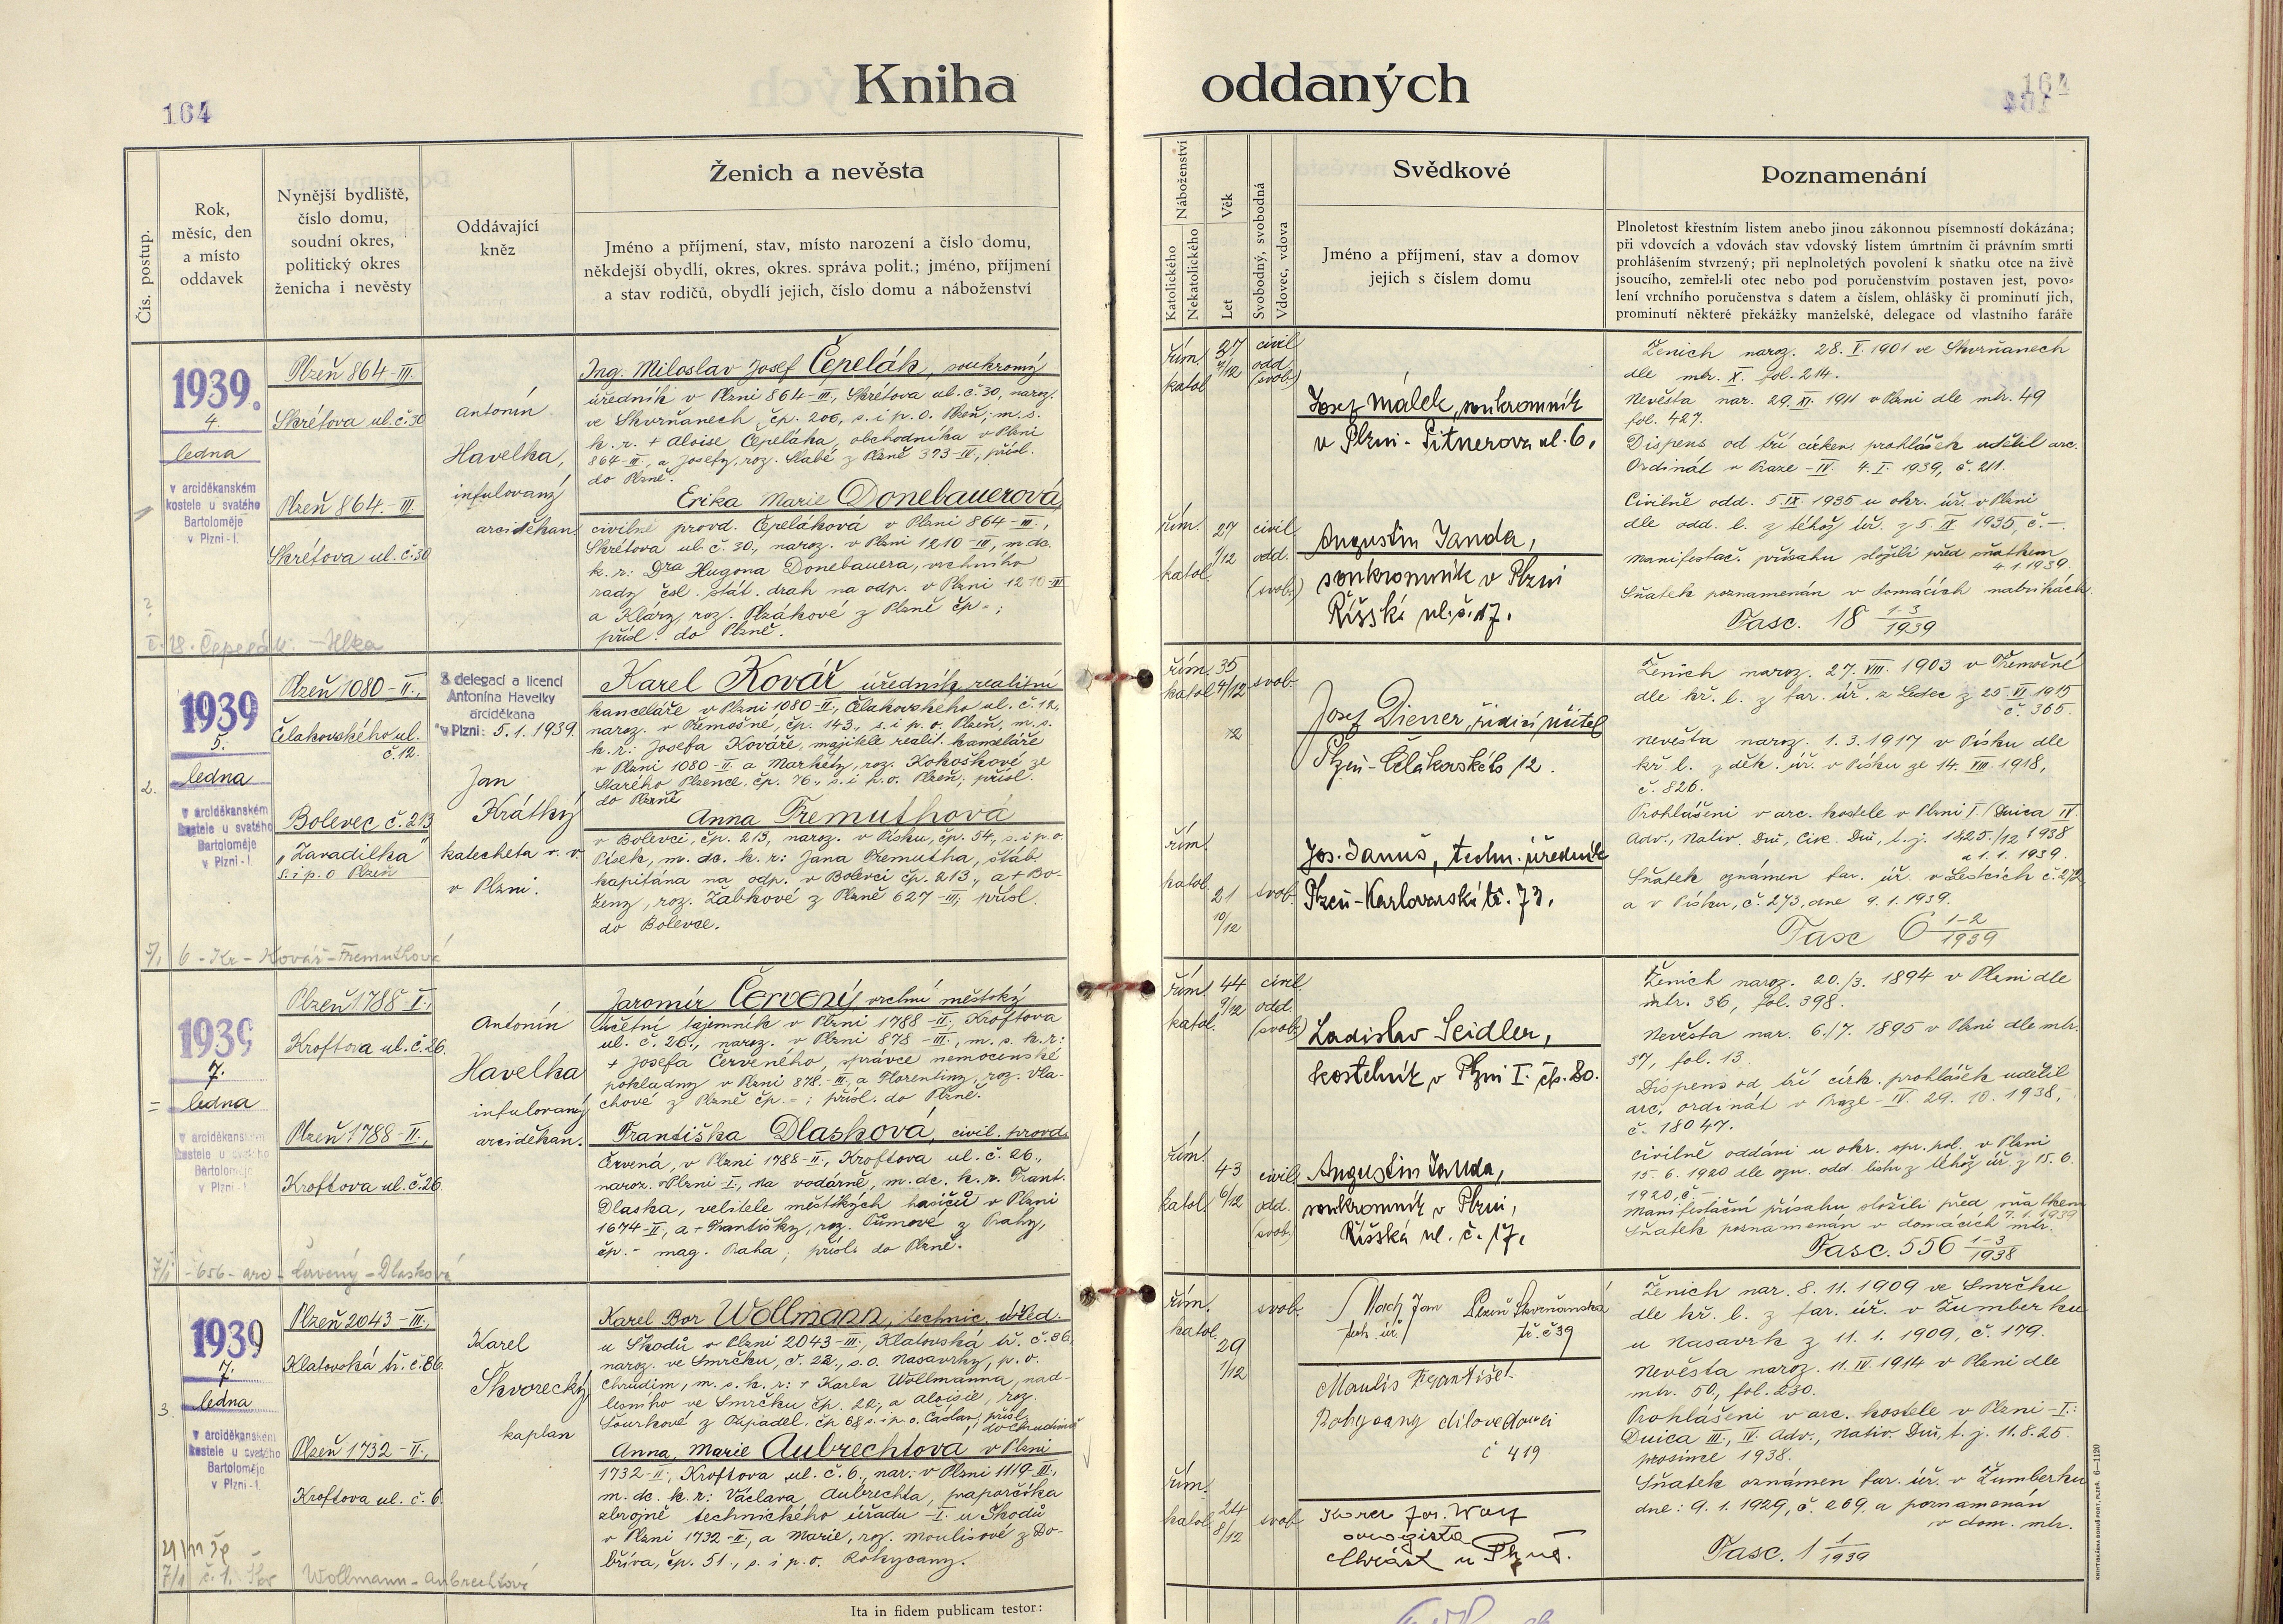 164
Kniha oddaných
164
Čís. postup.
Rok,
měsíc, den
a místo
oddavek
Nynější bydliště,
číslo domu,
soudní okres,
politický okres
ženicha i nevěsty
Oddávající
kněz
Ženich a nevěsta
Jméno a příjmení, stav, místo narození a číslo domu,
někdejší obydlí, okres, okres. správa polit.; jméno, příjmení
a stav rodičů, obydlí jejich, číslo domu a náboženství
Náboženství
Katolického
Nekatolického
Věk
Let
Svobodný, svobodná
Vdovec, vdova
Svědkové
Jméno a příjmení, stav a domov
jejich s číslem domu
Poznamenání
Plnoletost křestním listem anebo jinou zákonnou písemností dokázána;
při vdovcích a vdovách stav vdovský listem úmrtním či právním smrti
prohlášením stvrzený; při neplnoletých povolení k sňatku otce na živě
jsoucího, zemřel-li otec nebo pod poručenstvím postaven jest, povo-
lení vrchního poručenstva s datem a číslem, ohlášky či prominutí jich,
prominutí některé překážky manželské, delegace od vlastního faráře
1939.
4.
ledna
v arciděkanském
kostele u svatého
Bartoloměje
v Plzni-I.
Plzeň 864-III.
Skrétova ul. č. 30
Plzeň 864.-III.
Skrétova ul. č. 30
Antonín
Havelka,
infulovaný
arciděkan
Ing. Miloslav Josef Čepelák, soukromý
úředník v Plzni 864-III, Skrétova ul. č. 30, naroz.
ve Skvrňanech čp. 206, s. i p. o. Plzeň; m. s.
k. r. + Aloise Čepeláka, obchodníka v Plzni
864-III, a Josefy, roz. Slabé z Plzně 373-IV, přísl.
do Plzně.
Erika Marie Donebauerová
civilně provd. Čepeláková v Plzni 864-III.,
Skrétova ul. č. 30., naroz. v Plzni 1210-III, m. dc.
k. r: Dra Hugona Donebauera, vrchního
rady čsl. stát. drah na odp. v Plzni 1210-III
a Kláry, roz. Plzákové z Plzně čp - ;
přísl. do Plzně.
řím. 37 civil
7/12 odd.
katol. (svob.)
řím. 27 civil
1/12 odd.
katol. (svob.)
Josef Málek, soukromník
v Plzni - Pitnerova ul. 6.
Augustin Janda,
soukromník v Plzni
Říšská ul. č. 17.
Ženich naroz. 28. I. 1901 ve Skvrňanech
dle mtr. X. fol. 214.
Nevěsta nar. 29. XI. 1911 v Plzni dle mtr. 49
fol. 427.
Dispens od tří církev. prohlášek udělil arc.
Ordinát v Praze-IV. 4. I. 1939, č. 211.
Civilně odd. 5. IX. 1935 u okr. úř. v Plzni
dle odd. l. z téhož úř. z 5. IX 1935, č. -.
Manifestač. přísahu složili před sňatkem
4.1.1939.
Sňatek poznamenán v domácích matrikách.
Fasc. 18 1-3/1939
2.
1939
5.
ledna
v arciděkanském
kostele u svatého
Bartoloměje
v Plzni-I.
Plzeň 1080-II.,
Čelakovského ul.
č. 12.
Bolevec č. 213
"Zavadilka"
s. i p. o Plzeň
S delegací a licencí
Antonína Havelky
arciděkana
v Plzni: 5.1.1939.
Jan
Krátký
katecheta v. v.
v Plzni.
Karel Kovář úředník realitní
kanceláře v Plzni 1080-II, Čelakovského ul. č. 12,
naroz. v Třemošné, čp. 143., s. i p. o. Plzeň, m. s.
k. r: Josefa Kováře, majitele realit. kanceláře
v Plzni 1080-II. a Markéty, roz. Kokoškové ze
Starého Plzence, čp. 76., s. i p. o. Plzeň, přísl.
do Plzně
Anna Fremuthová
v Bolevci, čp. 213, naroz. v Písku, čp. 54, s. i p. o.
Písek, m. dc. k. r: Jana Fremutha, štáb.
kapitána na odp. v Bolevci čp. 213., a + Bo-
ženy, roz. Žabkové z Plzně 627-III; přísl.
do Bolevce.
5/1 6 - Kr - Kovář - Fremuthová
řím. 35 svob.
katol. 4/12
řím.
katol. 21 svob.
10/12
Josef Diener, řídící učitel
Plzeň-Čelakovského 12.
Jos. Januš, techn. úředník
Plzeň-Karlovarská tř. 73.
Ženich naroz. 27. VIII. 1903 v Třemošné
dle kř. l. z far. úř. z Ledec z 25. VI. 1915
č. 365.
Nevěsta naroz. 1.3.1917 v Písku dle
kř. l. z děk. úř. v Písku ze 14. VIII. 1918,
č. 826.
Prohlášeni v arc. kostele v Plzni I. Dnica IV
a 1.1.1939.
Sňatek oznámen far. úř. v Ledcích
a v Písku, č. 273, dne 9.1.1939.
Fasc 6 1-2/1939
1939
7.
ledna
v arciděkanském
kostele u svatého
Bartoloměje
v Plzni-I.
Plzeň 1788-I.,
Kroftova ul. č. 26.
Plzeň 1788-II.,
Kroftova ul. č. 26.
Antonín
Havelka
infulovaný
arciděkan.
Jaromír Červený vrchní městský
účetní tajemník v Plzni 1788-II., Kroftova
ul. č. 26., naroz. v Plzni 878-III., m. s. k. r:
+ Josefa Červeného, správce nemocenské
pokladny v Plzni 878.-III, a Florentiny, roz. Vla-
chové z Plzně čp. - ; přísl. do Plzně.
Františka Dlasková, civil. provd.
Červená, v Plzni 1788-II., Kroftova ul. č. 26.,
naroz. v Plzni-I., na vodárně, m. dc. k. r. Frant.
Dlaska, velitele městských hasičů v Plzni
1674-II, a + Františky, roz. Tůmové z Prahy,
čp. - mag. Praha; přísl. do Plzně.
7/1 - 656 - arc - Červený - Dlasková
řím. 44 civil
9/12 odd.
katol. (svob.)
řím. 43 civil
katol. 6/12 odd.
(svob.)
Ladislav Seidler,
kostelník v Plzni I. čp. 80.
Augustin Janda,
soukromník v Plzni,
Říšská ul. č. 17.
Ženich naroz. 20./3. 1894 v Plzni dle
mtr. 36, fol. 398.
Nevěsta nar. 6./7. 1895 v Plzni dle mtr.
37, fol. 13.
Dispens od tří círk. prohlášek udělil
arc. ordinát v Praze-IV. 29. 10. 1938,
č. 18047.
Civilně oddáni u okr. spr. pol. v Plzni
15. 6. 1920 dle ozn. odd. listu z téhož úř. z 15. 6.
1920, č.
Manifestační přísahu složili před sňatkem
7.1.1939
Sňatek poznamenán v domácích mtr.
Fasc. 556 1-3/1938
3.
1939
7.
ledna
v arciděkanském
kostele u svatého
Bartoloměje
v Plzni-I.
Plzeň 2043-III.,
Klatovská tř. č. 86.
Plzeň 1732-II.,
Kroftova ul. č. 6.
Karel
Skvorecký
kaplan
Karel Bor Wollmann, technic. úřed.
u Škodů v Plzni 2043-III., Klatovská tř. č. 86.
naroz. ve Smrčku, č. 22., s. o. Nasavrky, p. o.
Chrudim, m. s. k. r: + Karla Wollmanna, nad-
lesního ve Smrčku čp. 22., a Aloisie, roz.
přísl.
do Chrudimě
Anna, Marie Aubrechtova v Plzni
1732-II., Kroftova ul. č. 6., nar. v Plzni 1119-III.,
m. dc. k. r: Václava Aubrechta, praporčíka
zbrojně technického úřadu -I. u Škodů
v Plzni 1732-II, a Marie, roz. Moulisové z Do-
bříva, čp. 51., s. i p. o. Rokycany.
7/1 č. 1. Wollmann - Aubrechtová
řím. svob.
katol. 29
1/12
řím.
katol. 24 svob.
8/12
Mach Jan Plzeň Skvrňanská
tech. úř. tř. č 39
Moulis František
Rokycany dílovedoucí
č 419
Chrást u Plzně.
Ženich nar. 8. 11. 1909 ve Smrčku
dle kř. l. z far. úř. v Žumberku
u Nasavrk z 11. 1. 1909, č. 179.
Nevěsta naroz. 11. IV. 1914 v Plzni dle
mtr. 50, fol. 230.
Prohlášeni v arc. kostele v Plzni-I:
Dnica III., IV. Adv., Nativ. Dni, t. j. 11. 8. 25.
prosince 1938.
Sňatek oznámen far. úř. v Žumberku
dne: 9. 1. 1929, č. 269. a poznamenán
v dom. mtr.
Fasc. 1 1/1939
Ita in fidem publicam testor: